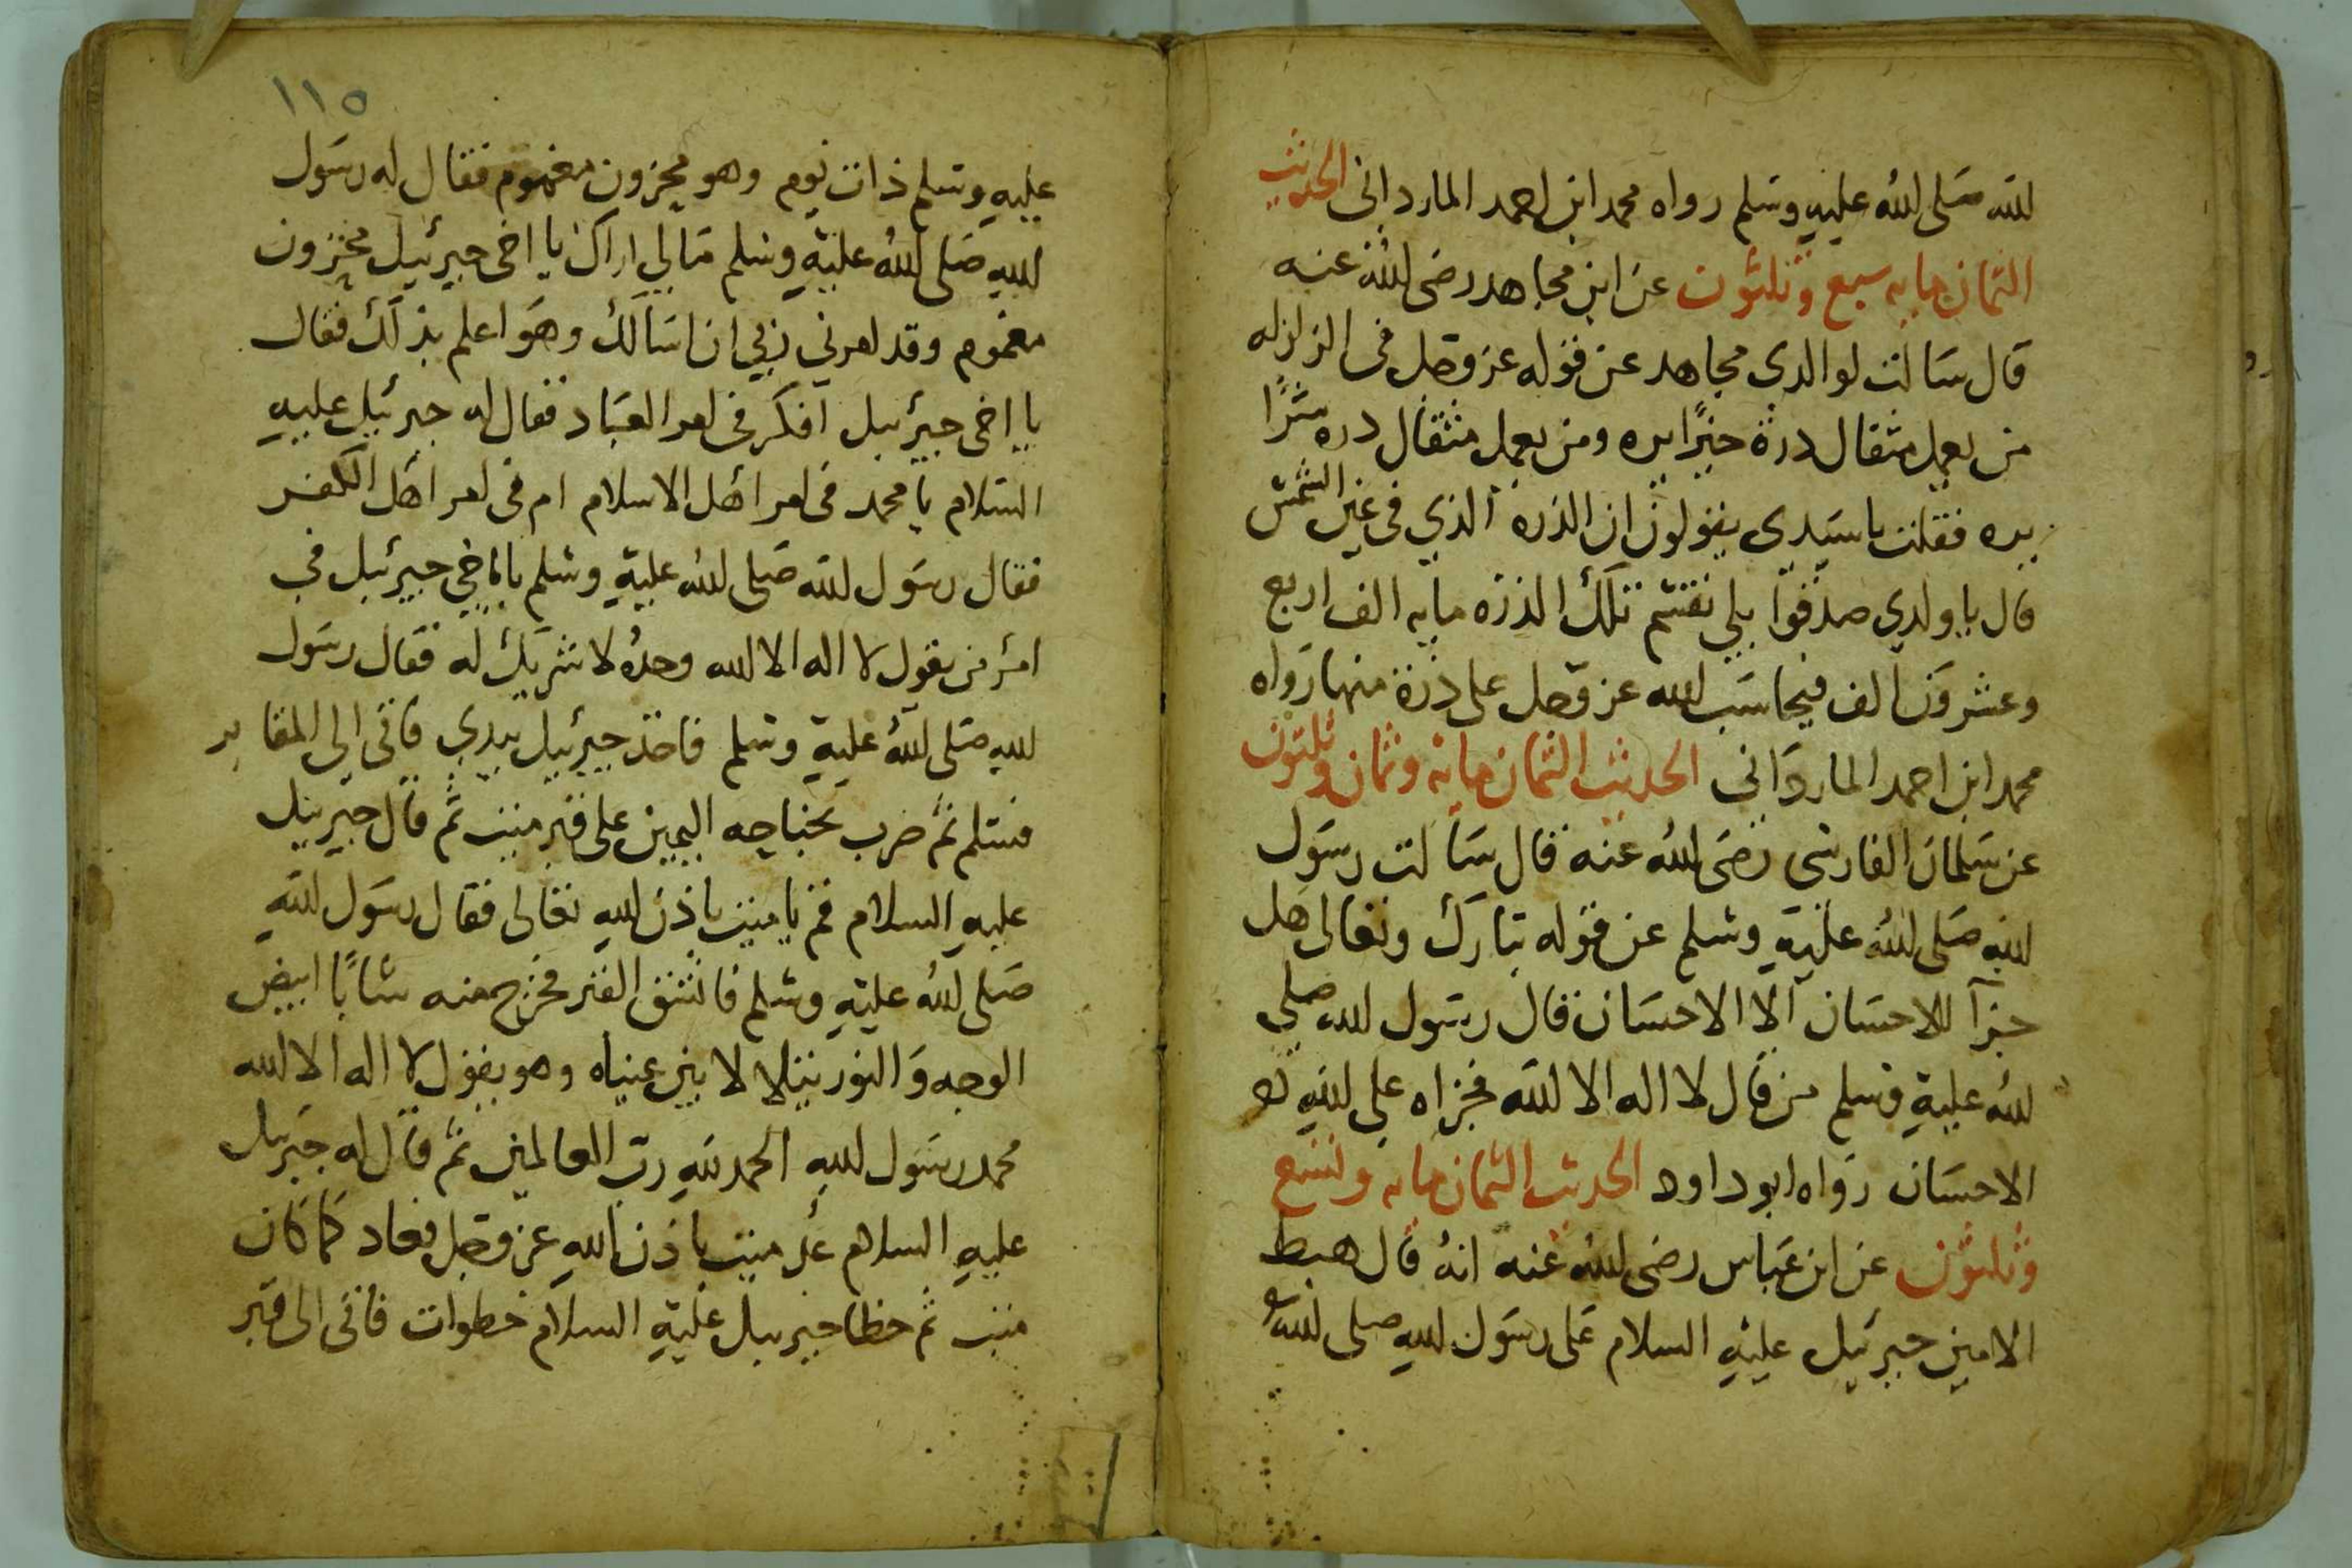 لله صلى الله عليه وسلم رواه محمد ابن احمد المارداني الحديث
الثمان مايه سبع وثلثون عن ابن مجاهد رضى الله عنه
قال سالت لوالدي مجاهد عن قوله عز وجل فى الزلزله
من يعمل مثقال درة خيرًا يره ومن يعمل مثقال دره شرًا
يره فقلت ياسيدى يقولون ان الذره الذي في عين الشمس
قال يا ولدي صدقوا بلي تقسم تلك الذره مايه الف اربع
وعشرون الف فيحاسب الله عز وجل على ذرة منها رواه
محمد ابن احمد المارداني الحديث الثمان مايه وثمان وثلثون
عن سلمان الفارسى رضى الله عنه قال سالت رسول
الله صلى الله عليه وسلم عن قوله تبارك وتعالى هل
جزآ للاحسان الا الاحسان قال رسول الله صلى
الله عليه وسلم من قال لا اله الا الله فجزاه على الله
الاحسان رواه ابو داود الحديث الثمان مايه وتسع
وثلثون عن ابن عباس رضى الله عنه انه قال هبط
الامين جبرئيل عليه السلام على رسول الله صلى الله
١١٥
عليه وسلم ذات يوم وهو محزون مغموم فقال له رسول
الله صلى الله عليه وسلم مالي اراك يا اخى جبرئيل محزون
مغموم وقد امرني ربي ان اسالك وهو اعلم بذلك فقال
يا اخى جبرئيل افكر فى امر العباد فقال له جبرئيل عليه
السلام يا محمد فى امر اهل الاسلام ام فى امر اهل الكفر
فقال رسول الله صلى الله عليه وسلم يا اخي جبرئيل في
امر من يقول لا اله الا الله وحده لا شريك له فقال رسول
الله صلى الله عليه وسلم فاخذ جبرئيل بيدي فاتى الى المقابر
فسلم ثم ضرب بجناحه اليمين على قبر ميت ثم قال جبرئيل
عليه السلام قم يا ميت باذن الله تعالى فقال رسول الله
صلى الله عليه وسلم فانشق القبر فخرج منه شابًا ابيض
الوجه والنور يتلالا بين عيناه وهو يقول لا اله الا الله
محمد رسول الله الحمد لله رب العالمين ثم قال له جبرئيل
عليه السلام عد ميت باذن الله عز وجل فعاد كما كان
ميت ثم خطا جبرئيل عليه السلام خطوات فاتى الى قبر